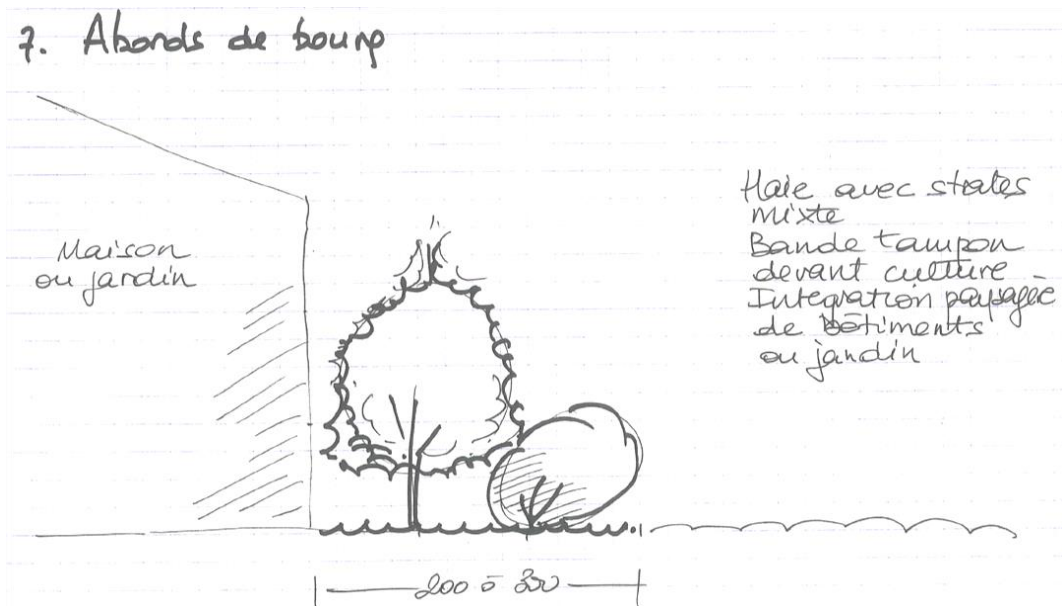 7. Abords de bourg
Maison
ou jardin
Haie avec strates
mixte
Bande tampon
devant culture
Intégration paysagée
de bâtiments
ou jardin
200 à